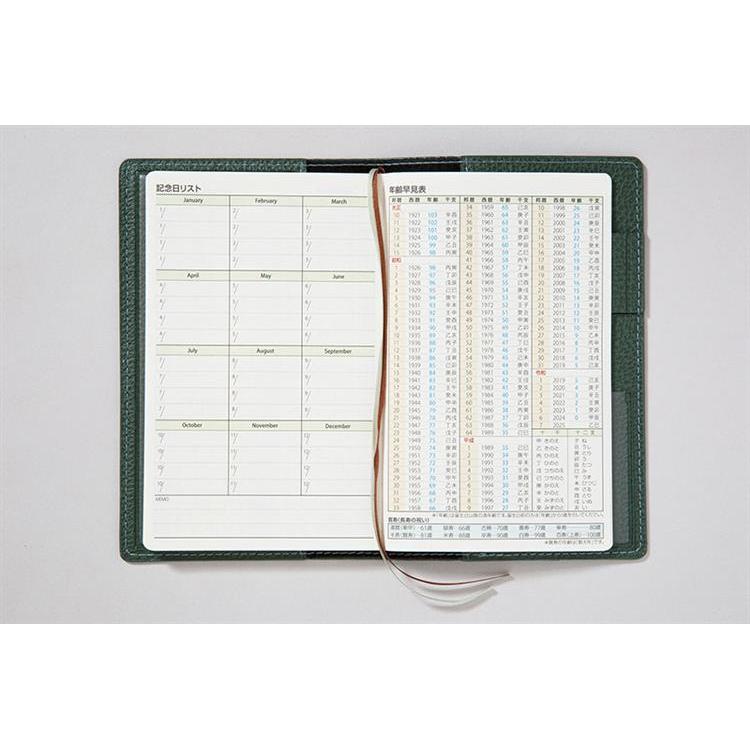 記念日リスト
January February March
1/ 2/ 3/
1/ 2/ 3/
1/ 2/ 3/
1/ 2/ 3/
April May June
4/ 5/ 6/
4/ 5/ 6/
4/ 5/ 6/
4/ 5/ 6/
July August September
7/ 8/ 9/
7/ 8/ 9/
7/ 8/ 9/
7/ 8/ 9/
October November December
10/ 11/ 12/
10/ 11/ 12/
10/ 11/ 12/
10/ 11/ 12/
MEMO
年齢早見表
邦暦 西暦 年齢 干支
大正
10 1921 103 辛酉
11 1922 102 壬戌
12 1923 101 癸亥
13 1924 100 甲子
14 1925 99 乙丑
15 1926 98 丙寅
昭和
1 1926 98 丙寅
2 1927 97 丁卯
3 1928 96 戊辰
4 1929 95 己巳
5 1930 94 庚午
6 1931 93 辛未
7 1932 92 壬申
8 1933 91 癸酉
9 1934 90 甲戌
10 1935 89 乙亥
11 1936 88 丙子
12 1937 87 丁丑
13 1938 86 戊寅
14 1939 85 己卯
15 1940 84 庚辰
16 1941 83 辛巳
17 1942 82 壬午
18 1943 81 癸未
19 1944 80 甲申
20 1945 79 乙酉
21 1946 78 丙戌
22 1947 77 丁亥
23 1948 76 戊子
24 1949 75 己丑
25 1950 74 庚寅
26 1951 73 辛卯
27 1952 72 壬辰
28 1953 71 癸巳
29 1954 70 甲午
30 1955 69 乙未
31 1956 68 丙申
32 1957 67 丁酉
33 1958 66 戊戌
邦暦 西暦 年齢 干支
34 1959 65 己亥
35 1960 64 庚子
36 1961 63 辛丑
37 1962 62 壬寅
38 1963 61 癸卯
39 1964 60 甲辰
40 1965 59 乙巳
41 1966 58 丙午
42 1967 57 丁未
43 1968 56 戊申
44 1969 55 己酉
45 1970 54 庚戌
46 1971 53 辛亥
47 1972 52 壬子
48 1973 51 癸丑
49 1974 50 甲寅
50 1975 49 乙卯
51 1976 48 丙辰
52 1977 47 丁巳
53 1978 46 戊午
54 1979 45 己未
55 1980 44 庚申
56 1981 43 辛酉
57 1982 42 壬戌
58 1983 41 癸亥
59 1984 40 甲子
60 1985 39 乙丑
61 1986 38 丙寅
62 1987 37 丁卯
63 1988 36 戊辰
64 1989 35 己巳
平成
1 1989 35 己巳
2 1990 34 庚午
3 1991 33 辛未
4 1992 32 壬申
5 1993 31 癸酉
6 1994 30 甲戌
7 1995 29 乙亥
8 1996 28 丙子
9 1997 27 丁丑
邦暦 西暦 年齢 干支
10 1998 26 戊寅
11 1999 25 己卯
12 2000 24 庚辰
13 2001 23 辛巳
14 2002 22 壬午
15 2003 21 癸未
16 2004 20 甲申
17 2005 19 乙酉
18 2006 18 丙戌
19 2007 17 丁亥
20 2008 16 戊子
21 2009 15 己丑
22 2010 14 庚寅
23 2011 13 辛卯
24 2012 12 壬辰
25 2013 11 癸巳
26 2014 10 甲午
27 2015 9 乙未
28 2016 8 丙申
29 2017 7 丁酉
30 2018 6 戊戌
31 2019 5 己亥
令和
1 2019 5 己亥
2 2020 4 庚子
3 2021 3 辛丑
4 2022 2 壬寅
5 2023 1 癸卯
6 2024 0 甲辰
7 2025 乙巳
十干 十二支
甲 きのえ
乙 きのと
丙 ひのえ
丁 ひのと
戊 つちのえ
己 つちのと
庚 かのえ
辛 かのと
壬 みずのえ
癸 みずのと
子 ね
丑 うし
寅 とら
卯 う
辰 たつ
巳 み
午 うま
未 ひつじ
申 さる
酉 とり
戌 いぬ
亥 い
賀寿(長寿の祝い)
還暦(華甲)―61歳 緑寿―66歳 古稀―70歳 喜寿―77歳 傘寿―80歳
半寿(盤寿)―81歳 米寿―88歳 卒寿―90歳 白寿―99歳 百寿(上寿)―100歳